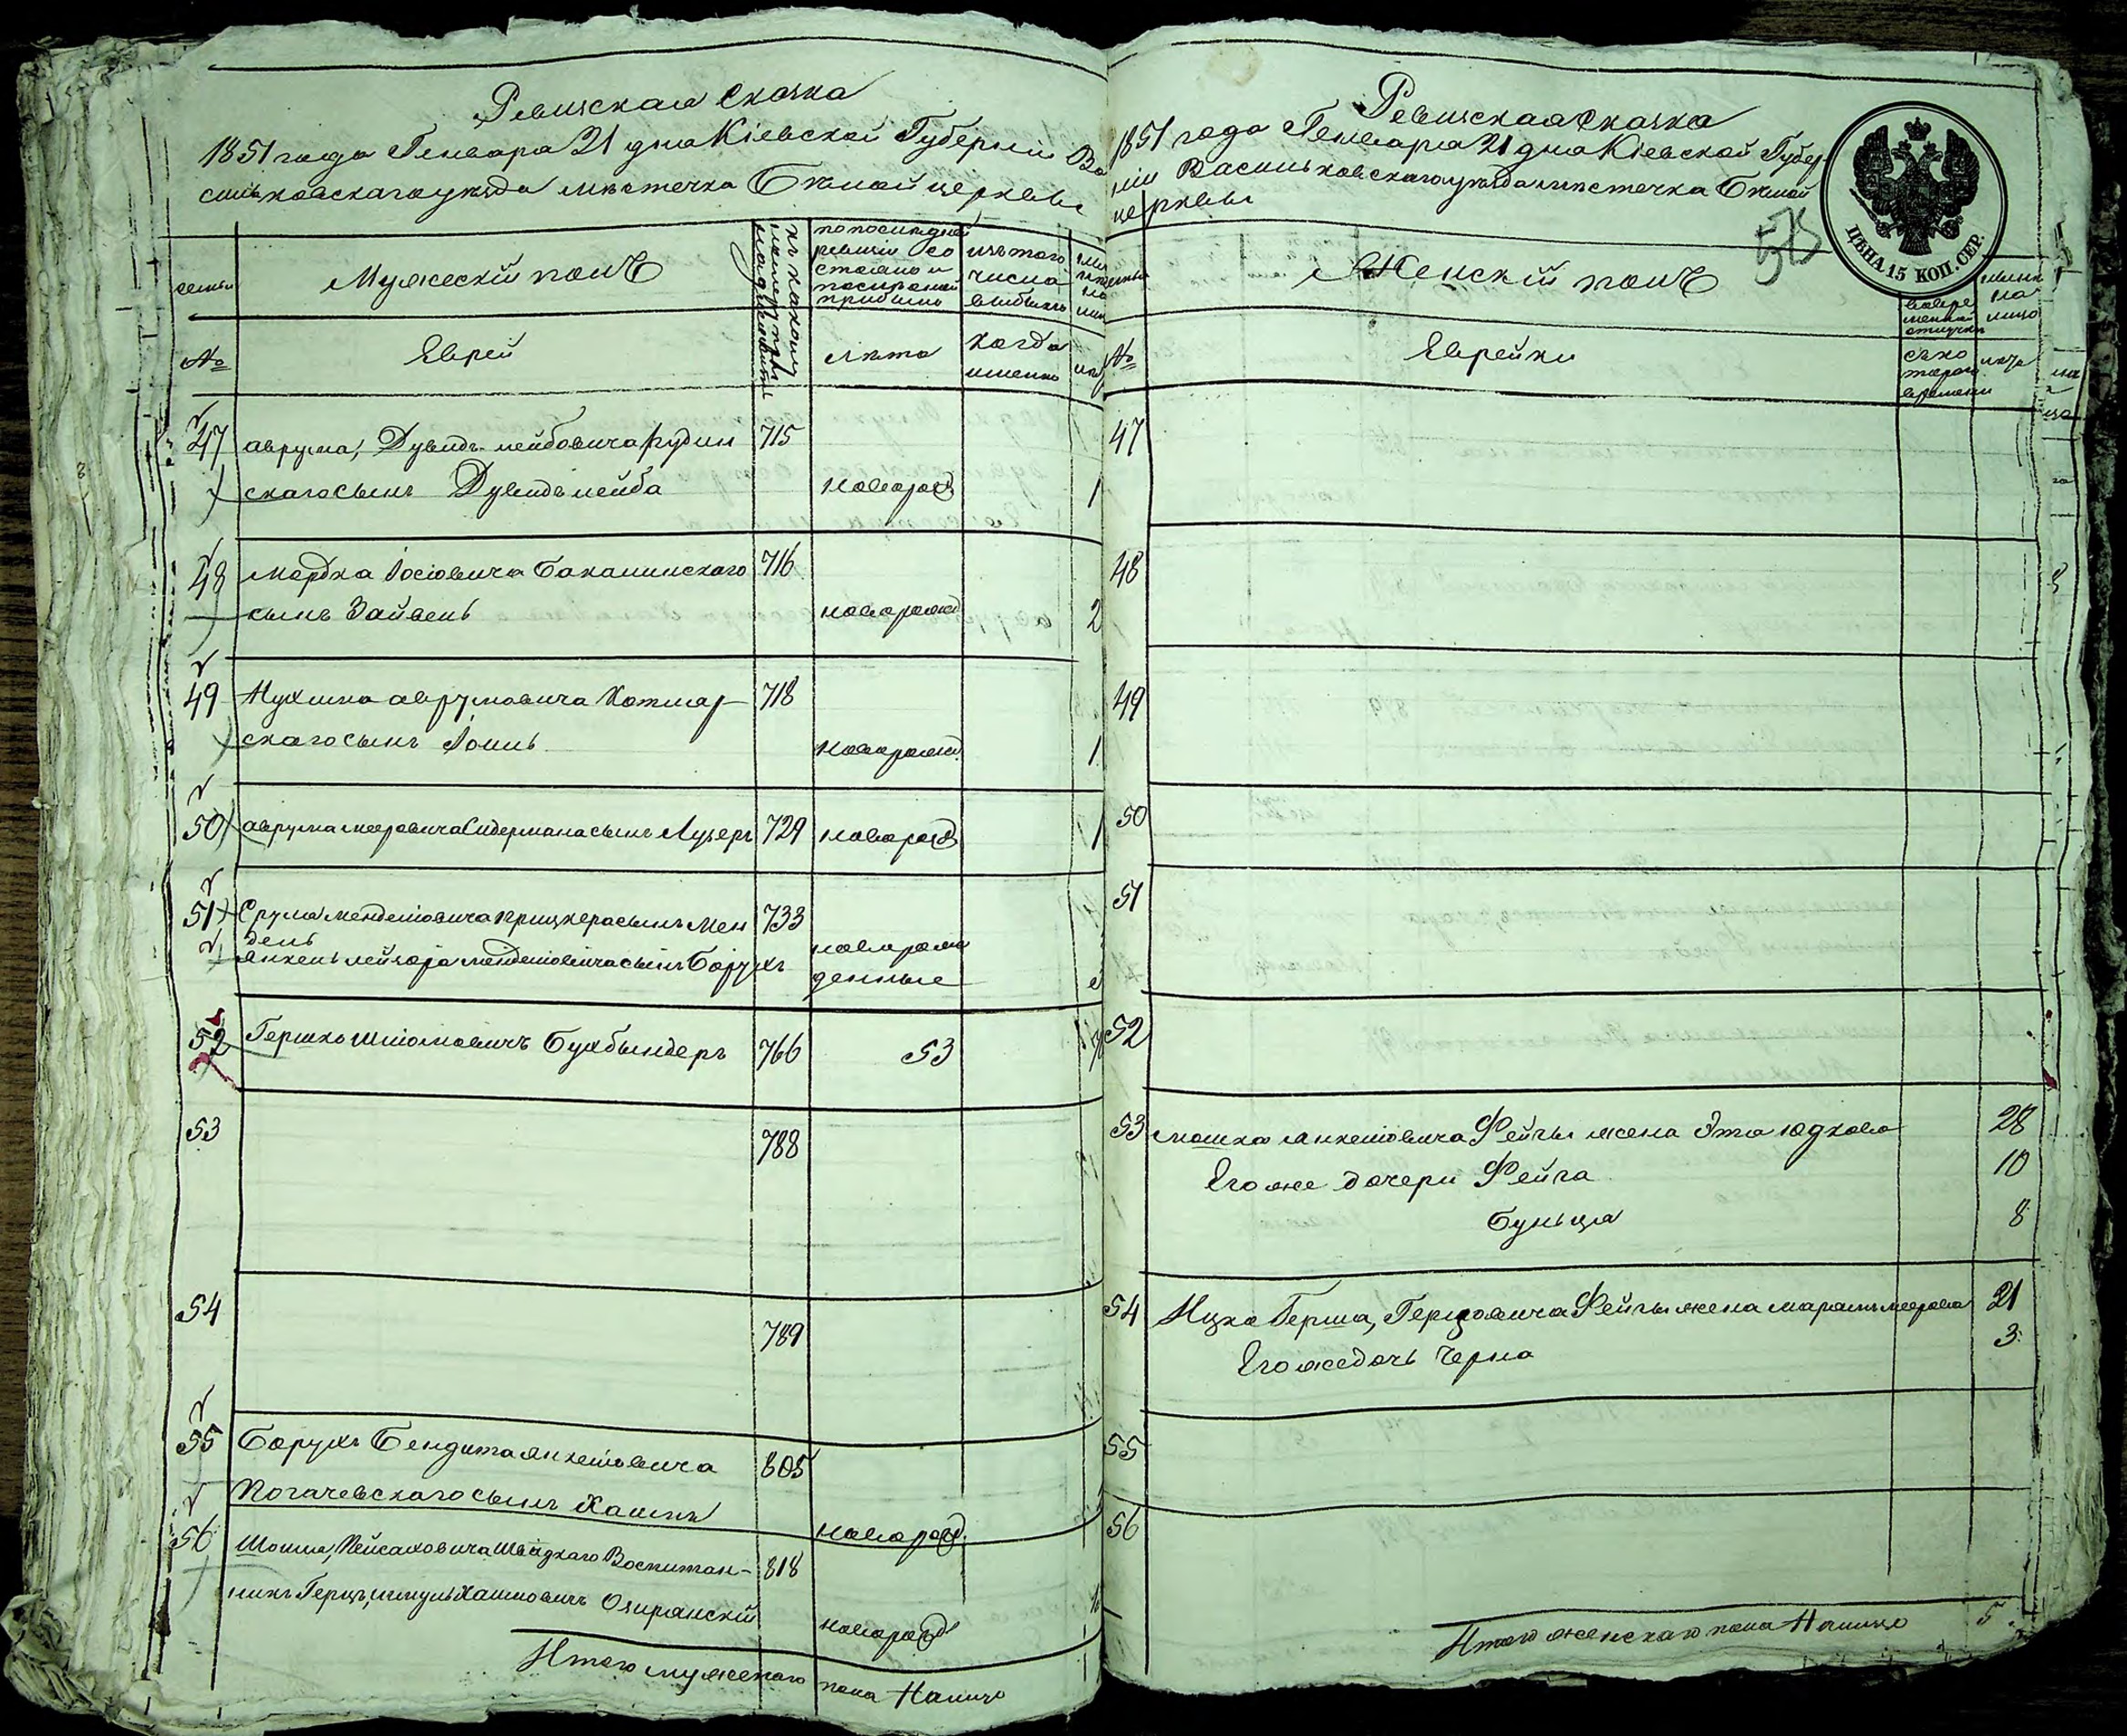 Ревизская Сказка
1851 года Генваря 21 дня Кіевской Губерніи Ва
сильковскаго уезда местечка Белой церкви
семьи
Мужескій полъ
по последней
ревизіи со
стояло и
после оной
прибыло
изъ того
числа
выбыло
№
Еврей
лета
когда
именно
47 Аврума, Дувидъ-лейбовича Рудин 715
скаго сынъ Дувидъ лейба новорожд 1
48 Мордка Іосіовича Бакалинскаго 716
сынъ Зайвель новорожд 2
49 Нухима Аврумовича Котляр 718
скаго сынъ Іоиль новорожд 1
50 Аврума мееровича Сидермана сынъ Лузеръ 729 новорожд 1
51 Срула менделіовича прицкера сынъ Мен 733
дель
Янкель лейзора менделіовича сынъ Борухъ новорож
денные
52 Гершко Шліомовичъ Бухбындеръ 766 53
53 788
54 789
55 Борухъ Бендита янкеліовича 805
Погачевскаго сынъ Хаимъ новорожд.
56 Шоила, Пейсаховича Швидкаго Воспитан- 818
никъ Герцъ, шмуль Хаимовичъ Озирянскій новорожд
Итого мужескаго пола На лицо
Ревизская Сказка
1851 года Генваря 21 дня Кіевской Губер
ніи Васильковскаго уезда местечка Белой
церкви
575
ЦѢНА 15 КОП. СЕР.
семьи
Женскій полъ
во вре
менной
отлучке
на
лицо
№
Еврейки
съ ко
тораго
времени
лета
47
48
49
50
51
52
53 мошка янкеліовича Фейгы жена Эта юдкова 28
Его же дочери Фейга 10
Буньця 8
54 Ицка Герша, Герцовича Фейгы жена марьямъ меерова 21
Его же дочь Черна 3
55
56
Итого женскаго пола На лицо 5